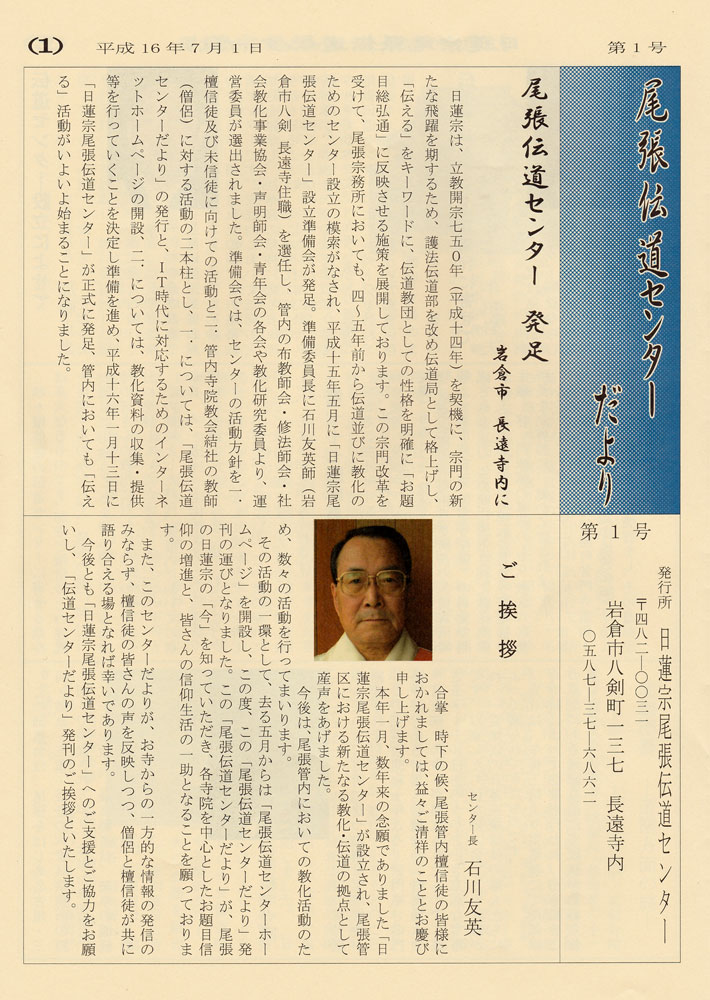 (1)
平成16年7月1日
第1号
尾張伝道センター
だより
第1号
発行所 日蓮宗尾張伝道センター
〒四八二―〇〇三一
岩倉市八剣町一三七 長遠寺内
〇五八七―三七―六八六二
尾張伝道センター 発足
岩倉市 長遠寺内に
日蓮宗は、立教開宗七五〇年（平成十四年）を契機に、宗門の新
たな飛躍を期するため、護法伝道部を改め伝道局として格上げし、
「伝える」をキーワードに、伝道教団としての性格を明確に「お題
目総弘通」に反映させる施策を展開しております。この宗門改革を
受けて、尾張宗務所においても、四～五年前から伝道並びに教化の
ためのセンター設立の模索がなされ、平成十五年五月に「日蓮宗尾
張伝道センター」設立準備会が発足。準備委員長に石川友英師（岩
倉市八剣 長遠寺住職）を選任し、管内の布教師会・修法師会・社
会教化事業協会・声明師会・青年会の各会や教化研究委員より、運
営委員が選出されました。準備会では、センターの活動方針を一．
檀信徒及び未信徒に向けての活動と二．管内寺院教会結社の教師
（僧侶）に対する活動の二本柱とし、一．については、「尾張伝道
センターだより」の発行と、ＩＴ時代に対応するためのインターネ
ットホームページの開設、二．については、教化資料の収集・提供
等を行っていくことを決定し準備を進め、平成十六年一月十三日に
「日蓮宗尾張伝道センター」が正式に発足、管内においても「伝え
る」活動がいよいよ始まることになりました。
ご挨拶
センター長 石川友英
合掌 時下の候、尾張管内檀信徒の皆様に
おかれましては、益々ご清祥のこととお慶び
申し上げます。
本年一月、数年来の念願でありました「日
蓮宗尾張伝道センター」が設立され、尾張管
区における新たなる教化・伝道の拠点として
産声をあげました。
今後は、尾張管内においての教化活動のた
め、数々の活動を行ってまいります。
その活動の一環として、去る五月からは「尾張伝道センターホー
ムページ」を開設し、この度、この「尾張伝道センターだより」発
刊の運びとなりました。この「尾張伝道センターだより」が、尾張
の日蓮宗の「今」を知っていただき、各寺院を中心としたお題目信
仰の増進と、皆さんの信仰生活の一助となることを願っておりま
す。
また、このセンターだよりが、お寺からの一方的な情報の発信の
みならず、檀信徒の皆さんの声を反映しつつ、僧侶と檀信徒が共に
語り合える場となれば幸いであります。
今後とも「日蓮宗尾張伝道センター」へのご支援とご協力をお願
いし、「伝道センターだより」発刊のご挨拶といたします。